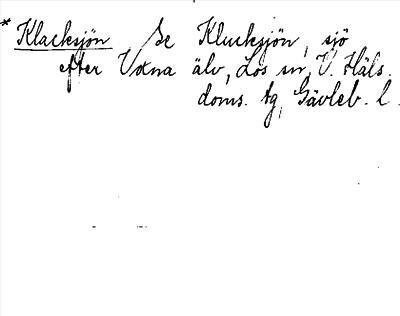 * Klacksjön Se Klucksjön, sjö
efter Voxna älv, Los sn, V. Häls.
doms. tg, Gävleb. l.